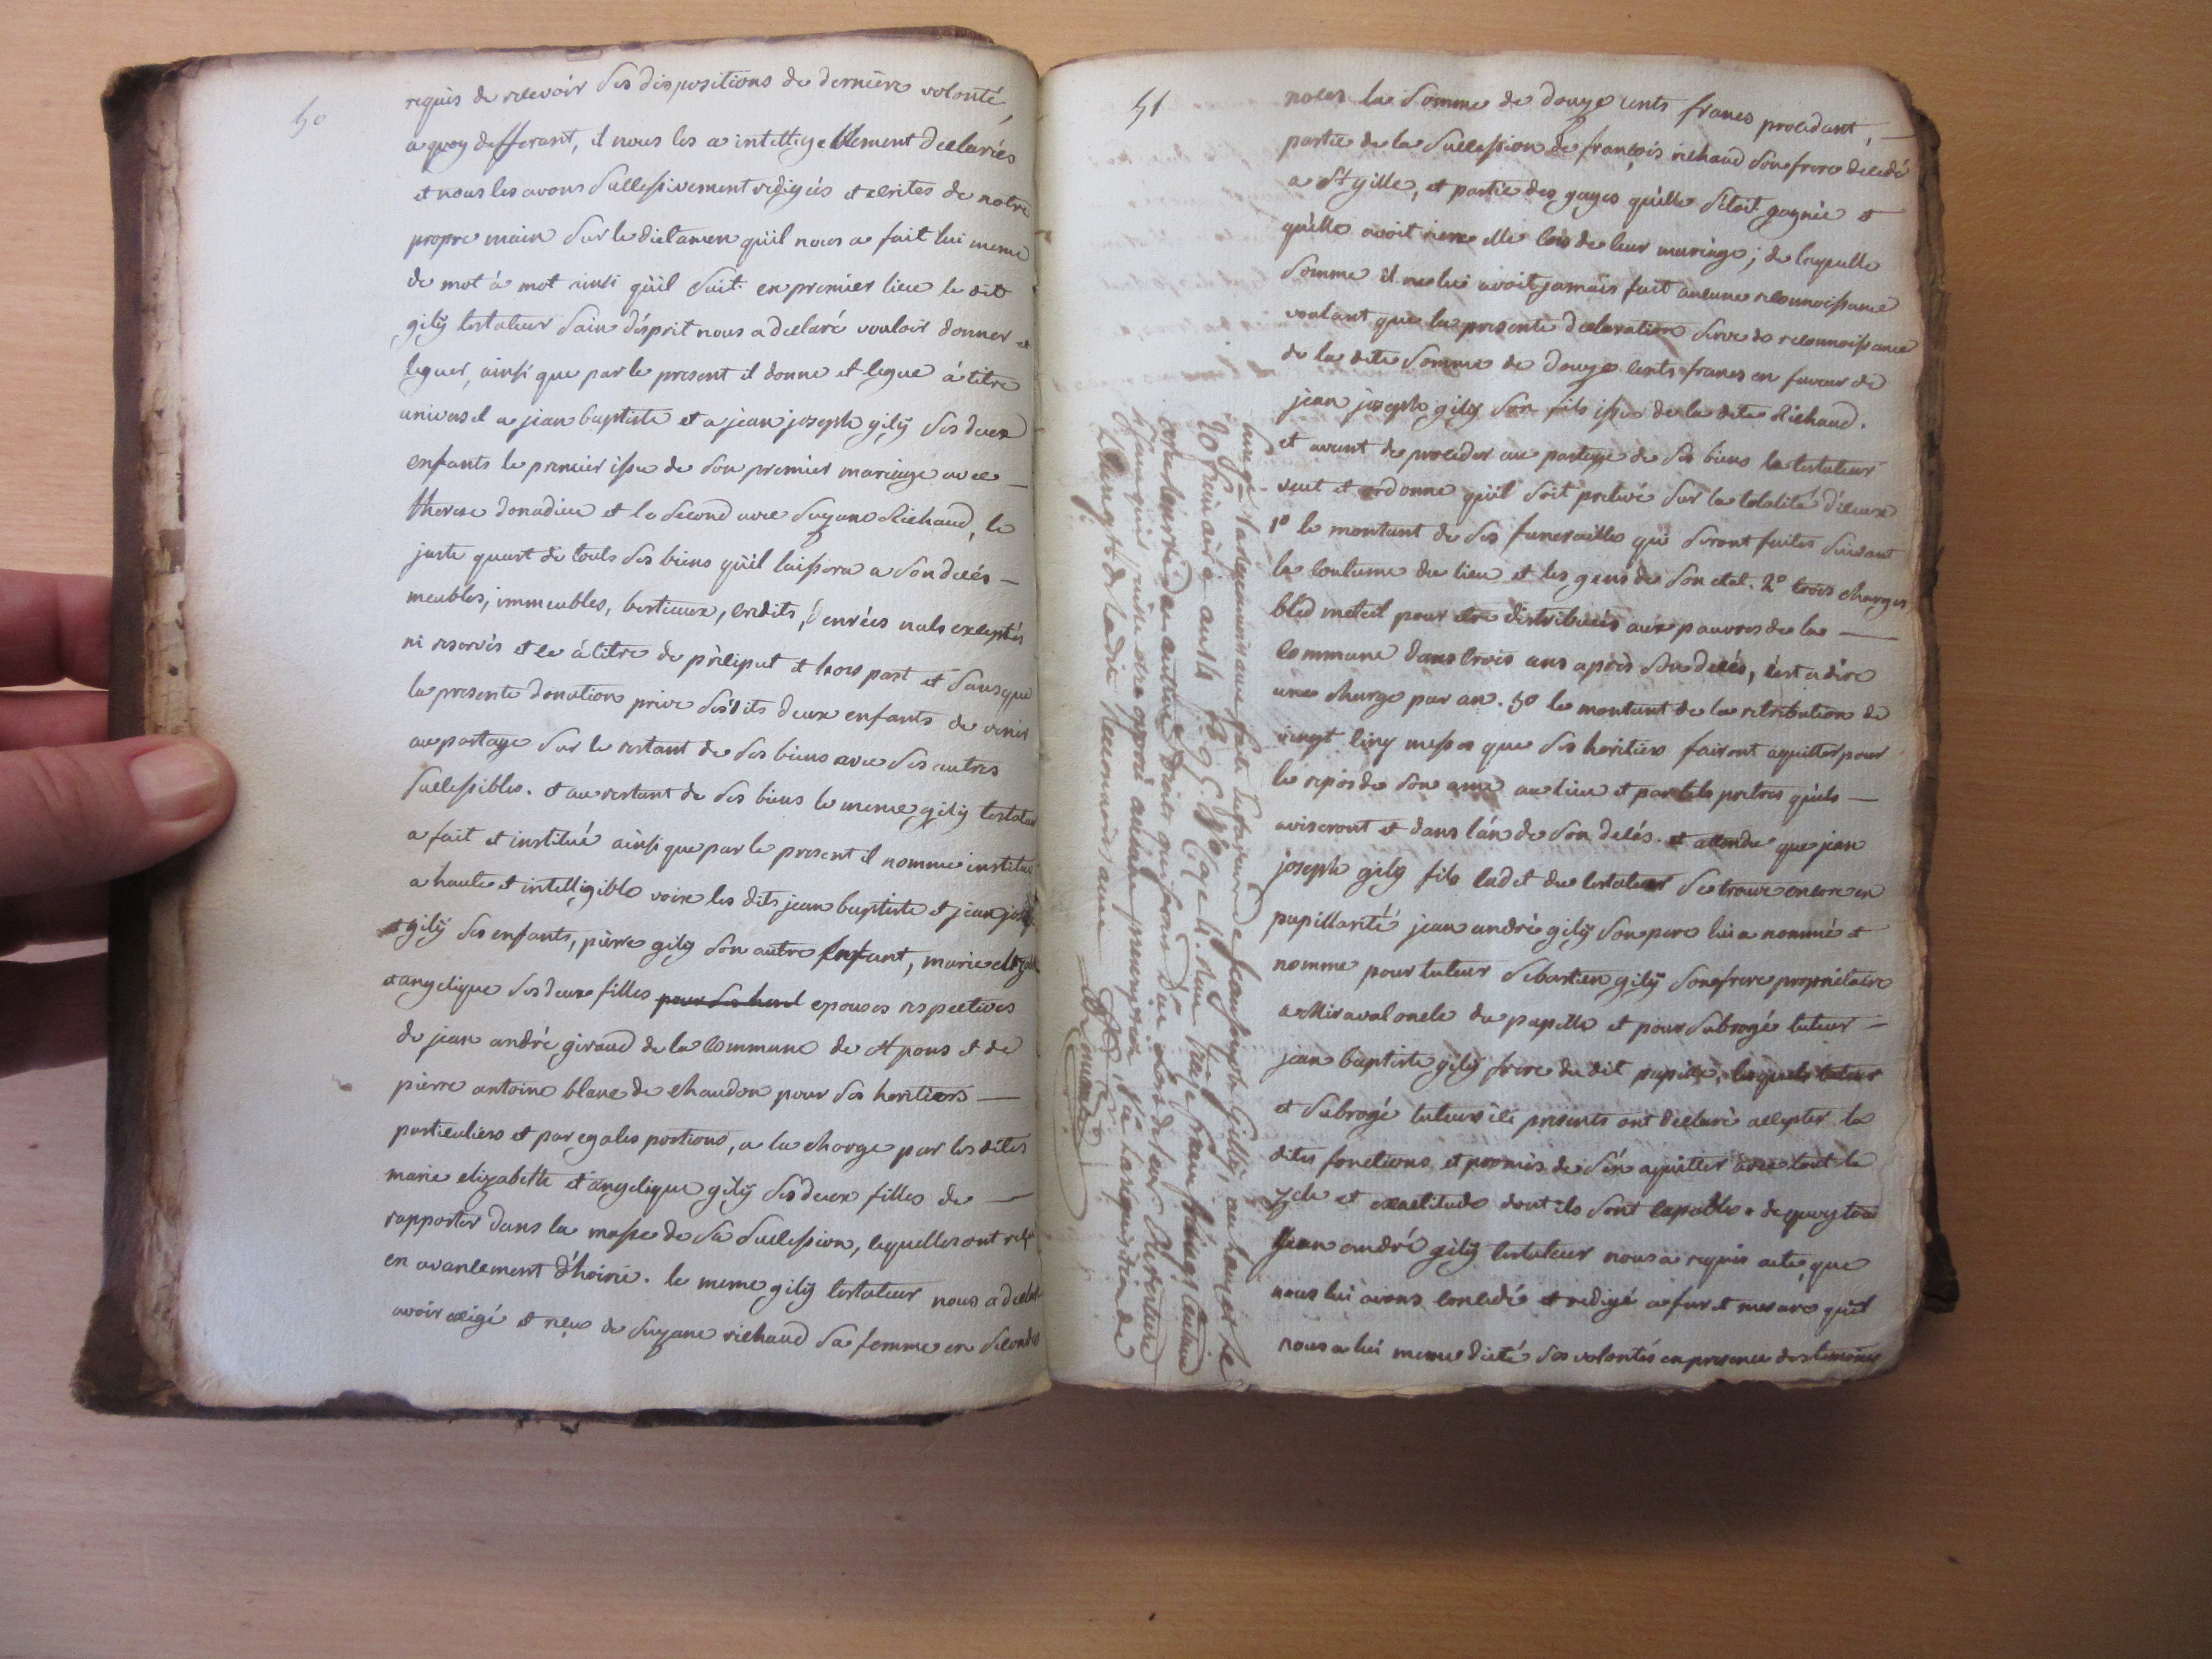 50
requis de recevoir ses dispositions de derniere volonté,
a quoy defferant, il nous les a intelligeblement declariés
et nous les avons successivement redigées et ecrites de notre
propre main sur le dictamen qu'il nous a fait lui meme
de mot à mot ainsi qu'il suit. en premier lieu le dit
gilÿ testateur sain d'ésprit nous a declaré vouloir donner et
leguer, ainsi que par le present il donne et legue à titre
universel a jean baptiste et a jean joseph gilÿ ses deux
enfants le premier issu de son premier mariage avec —
therese donadieu et le second avec suzane Richaud, le
juste quart de touts ses biens qu'il laissera a son decés —
meubles, immeubles, bestieaux, credits, denrées nuls exceptés
ni reservés et ce à titre de préciput et hors part et sans que
la presente donation prive ses dits deux enfants de venir
au partage sur le restant de ses biens avec ses autres
successibles. et au restant de ses biens le meme gilÿ testateur
a fait et institué ainsi que par le present il nomme institue
a haute et intelligible voix les dits jean baptiste et jean jos
gilÿ ses enfants, pierre gilÿ son autre enfant, marie elizab
et angelique ses deux filles pour ses herit epouses respectives
de jean andré giraud de la commune de St pons et de
pierre antoine blanc de chaudon pour ses heritiers —
particuliers et par egales portions, a la charge par les dites
marie elizabeth et angelique gilÿ ses deux filles de —
rapporter dans la masse de sa succession, ce qu'elles ont reçu
en avancement d'hoirie. le meme gilÿ testateur nous a declaré
avoir exigé et reçu de suzane richaud sa femme en secondes
51
noces la somme de douze cents francs procedant, —
partie de la succession de françois richaud son frere decedé
a St gille, et partie des gages qu'elle s'etoit gagnée et
qu'elle avoit riere elle lors de leur mariage; de laquelle
somme il ne lui avoit jamais fait aucune reconnoissance
voulant que la presente declaration serve de reconnoissance
de la dite somme de douze cents francs en faveur de
jean joseph gilÿ son fils issu de la dite Richaud.
et avant de proceder au partage de ses biens le testateur
veut et ordonne qu'il soit prelevé sur la totalité d'iceux
1º le montant de ses funerailles qui seront faites suivant
la coutume du lieu et les gens de son etat. 2º trois charges
bled meteil pour etre distribuées aux pauvres de la —
commune dans trois ans après son decés, c'est a dire
une charge par an. 3º le montant de la retribution de
vingt cinq messes que ses heritiers fairont aquitter pour
le repos de son ame au lieu et par tels pretres qu'ils —
aviseront et dans l'an de son decés. et attendu que jean
joseph gilÿ fils cadet du testateur se trouve encore en
pupillarité jean andré gilÿ son pere lui a nommé et
nomme pour tuteur sebastien gilÿ son frere propriétaire
a Miraval oncle du pupille et pour subrogé tuteur —
jean baptiste gilÿ frere du dit pupille, lesquels tuteur
et subrogé tuteur ici presents ont declaré accepter la
dites fonctions et promis de s'en aquitter avec tout le
zele et exactitude dont ils sont capables. de quoy tout
jean andré gilÿ testateur nous a requis acte, que
nous lui avons concedé et redigé a fur et mesure qu'il
nous a lui meme dicté ses volontés en presence des temoins
la reconnoissance faite en faveur de Jean joseph Gilly,